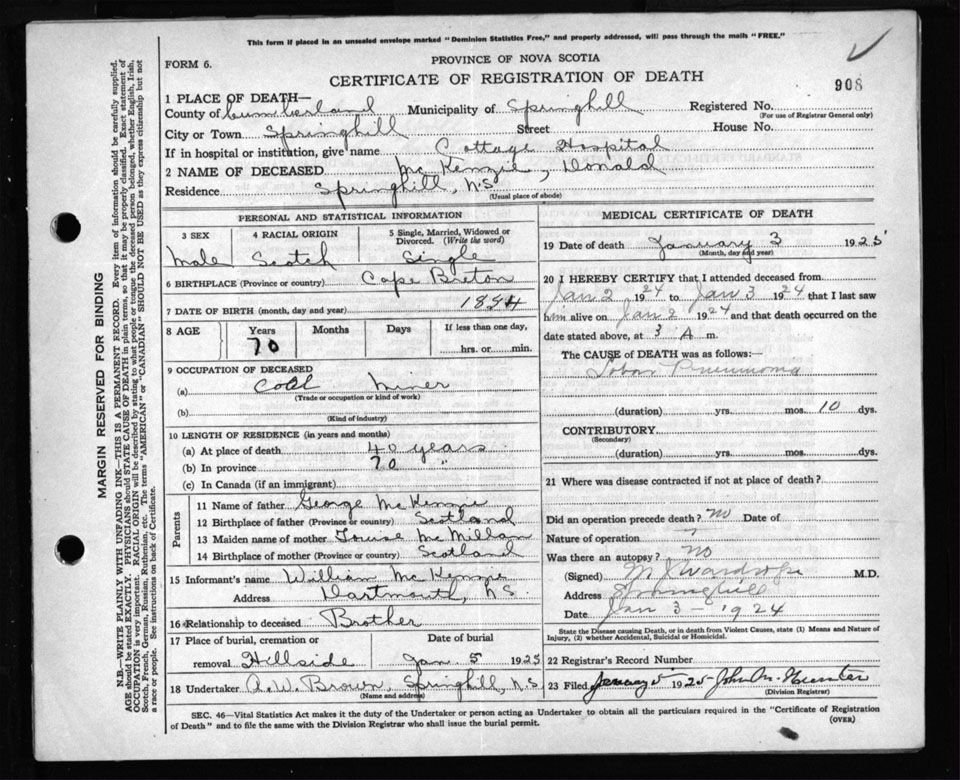 This form if placed in an unsealed envelope marked "Dominion Statistics Free," and properly addressed, will pass through the mails "FREE."
FORM 6.
PROVINCE OF NOVA SCOTIA
CERTIFICATE OF REGISTRATION OF DEATH
908
1 PLACE OF DEATH—
County of Cumberland Municipality of Springhill Registered No.
(For use of Registrar General only)
City or Town Springhill Street House No.
If in hospital or institution, give name Cottage Hospital
2 NAME OF DECEASED McKenzie, Donald
Residence Springhill, N.S
(Usual place of abode)
PERSONAL AND STATISTICAL INFORMATION
3 SEX 4 RACIAL ORIGIN 5 Single, Married, Widowed or Divorced. (Write the word)
Male Scotch Single
6 BIRTHPLACE (Province or country) Cape Breton
7 DATE OF BIRTH (month, day and year) 1854
8 AGE Years Months Days If less than one day,
70 hrs. or min.
9 OCCUPATION OF DECEASED
(a) Coal Miner
(Trade or occupation or kind of work)
(b)
(Kind of industry)
10 LENGTH OF RESIDENCE (in years and months)
(a) At place of death 40 years
(b) In province 70 "
(c) In Canada (if an immigrant)
Parents
11 Name of father George McKenzie
12 Birthplace of father (Province or country) Scotland
13 Maiden name of mother Louise McMillan
14 Birthplace of mother (Province or country) Scotland
15 Informant's name William McKenzie
Address Dartmouth, N.S.
16 Relationship to deceased Brother
17 Place of burial, cremation or Date of burial
removal Hillside Jan. 5 1925
18 Undertaker A. W. Brown, Springhill, N.S
(Name and address)
MEDICAL CERTIFICATE OF DEATH
19 Date of death January 3 1925
(Month, day and year)
20 I HEREBY CERTIFY that I attended deceased from
Jan 2 1924 to Jan 3 1924 that I last saw
him alive on Jan 2 1924 and that death occurred on the
date stated above, at 3 A m.
The CAUSE OF DEATH was as follows:—
Lobar Pneumonia
(duration) yrs. mos. 10 dys.
CONTRIBUTORY
(Secondary)
(duration) yrs. mos. dys.
21 Where was disease contracted if not at place of death?
Did an operation precede death? No Date of
Nature of operation ?
Was there an autopsy? No
(Signed) Wardrope M.D.
Address Springhill
Date Jan 3 - 1924
State the Disease causing Death, or in death from Violent Causes, state (1) Means and Nature of
Injury, (2) whether Accidental, Suicidal or Homicidal.
22 Registrar's Record Number
23 Filed January 5 1925 John M. Hunter
(Division Registrar)
SEC. 46—Vital Statistics Act makes it the duty of the Undertaker or person acting as Undertaker to obtain all the particulars required in the "Certificate of Registration
of Death" and to file the same with the Division Registrar who shall issue the burial permit.
(OVER)
MARGIN RESERVED FOR BINDING
N.B.—WRITE PLAINLY WITH UNFADING INK—THIS IS A PERMANENT RECORD. Every item of information should be carefully supplied.
AGE should be stated EXACTLY. PHYSICIANS should STATE CAUSE OF DEATH in plain terms, so that it may be properly classified. Exact statement of
OCCUPATION is very important. RACIAL ORIGIN will be described by stating to what people or tongue the deceased person belonged, whether English, Irish,
Scotch, French, German, Russian, Ruthenian, etc. The terms "AMERICAN" or "CANADIAN" SHOULD NOT BE USED as they express citizenship but not
a race or people. See instructions on back of Certificate.